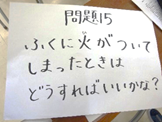 問題15
ふくに火がついて
しまったときは
どうすればいいかな?